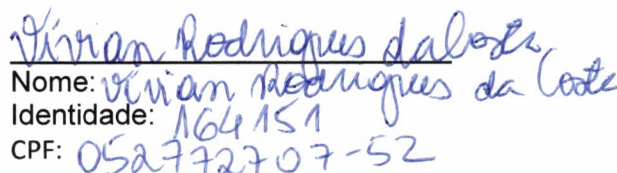 Vivian Rodrigues da Costa
Nome: Vivian Rodrigues da Costa
Identidade: 164151
CPF: 052772707-52